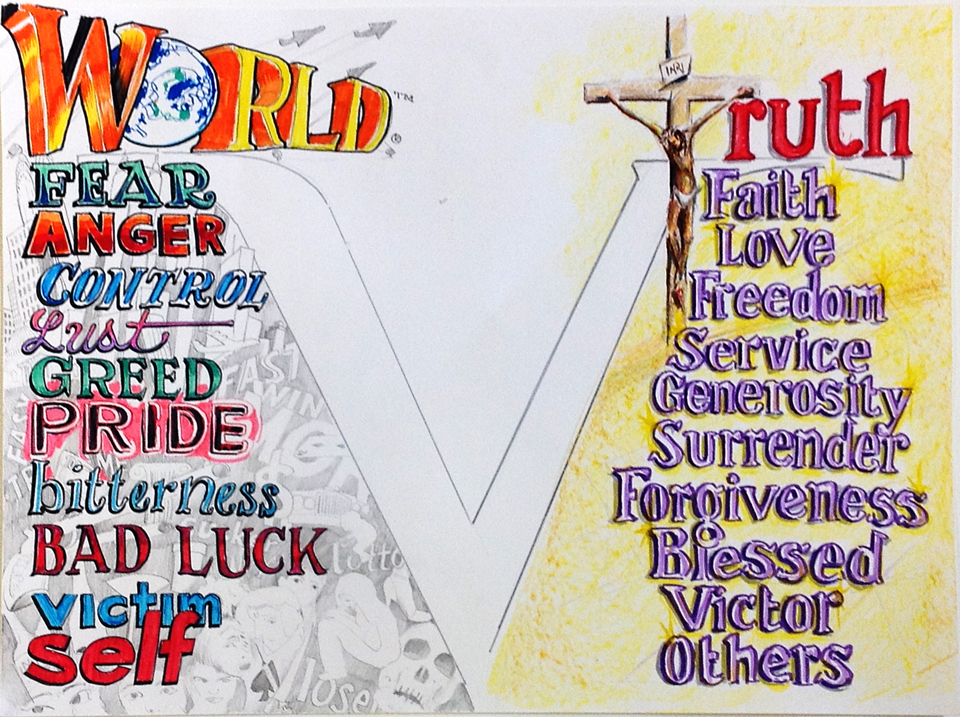 WORLD™®
FEAR
ANGER
CONTROL
Lust
GREED
PRIDE
bitterness
BAD LUCK
victim
self
FAST
WIN
lotto
loser
INRI
Truth
Faith
Love
Freedom
Service
Generosity
Surrender
Forgiveness
Blessed
Victor
Others